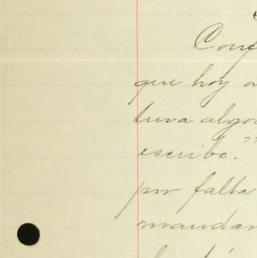 Conf
que hoy a
tura algo
escribo."
por falta
mandar